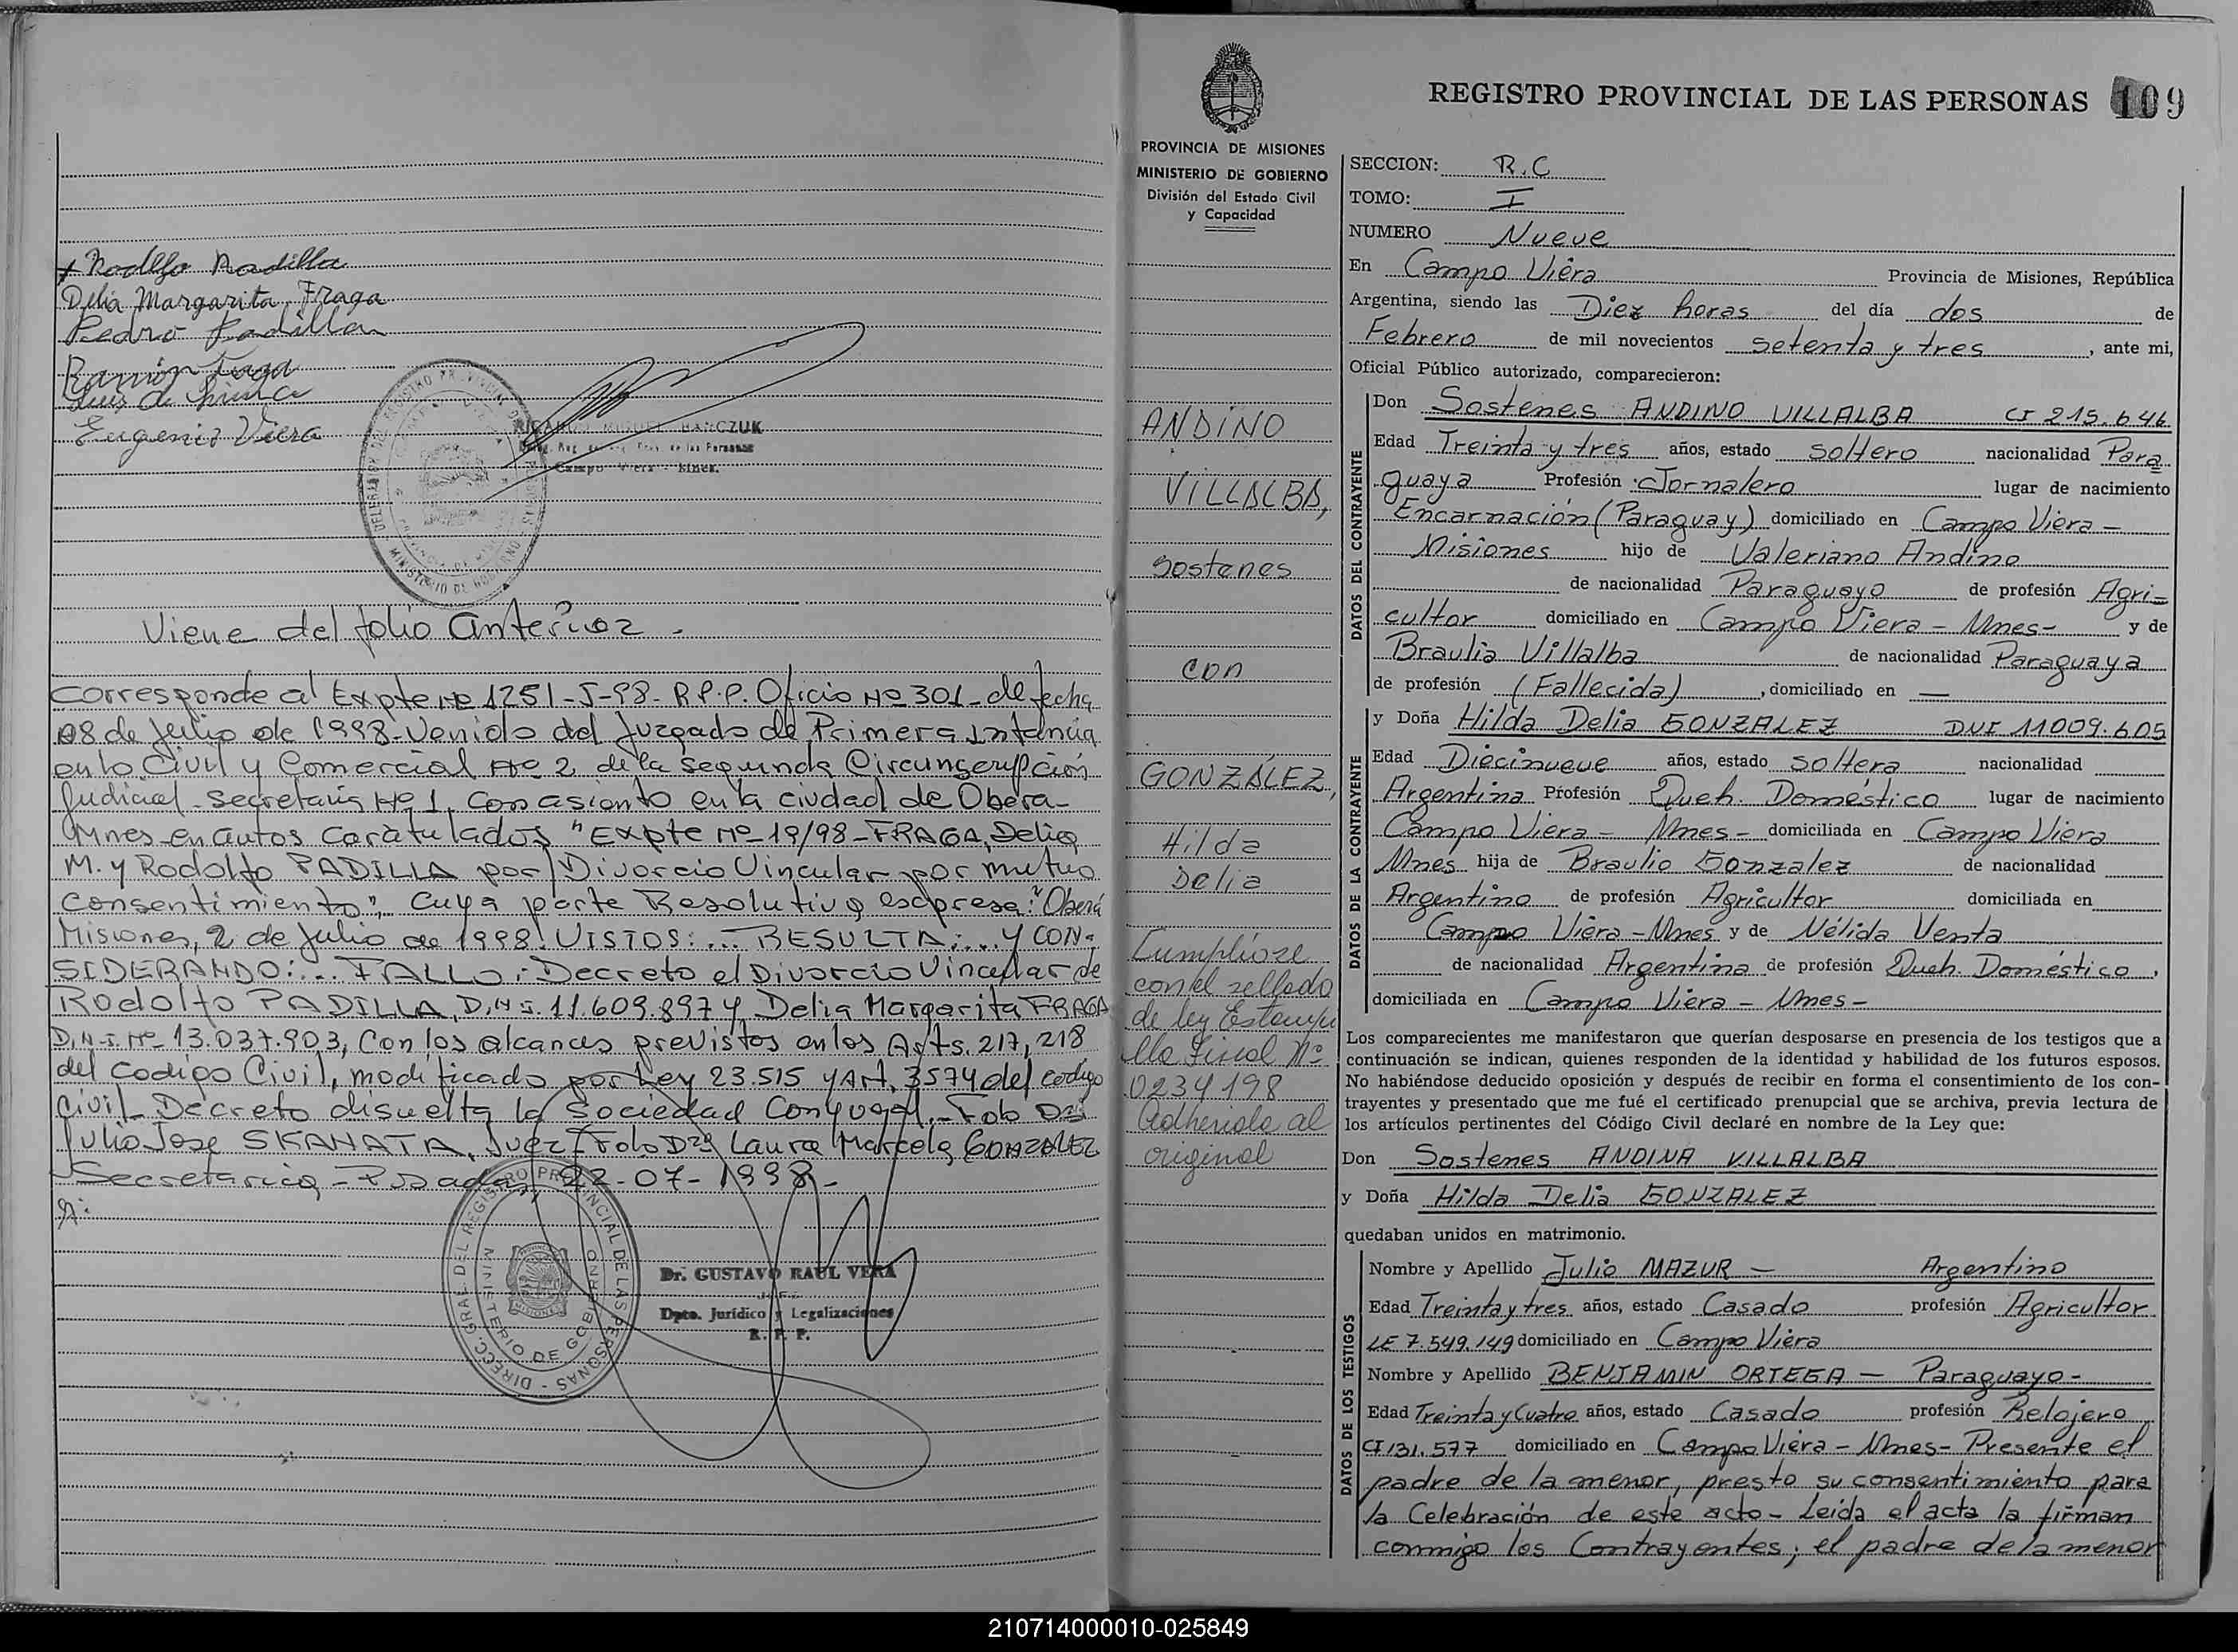 Rodolfo Padilla
Delia Margarita Fraga
Pedro Padilla
Ramón Fraga
Luis de
Eugenio Viera
HANCZUK
Campo Viera - Mnes.
Viene del folio anterior -
Corresponde al Expte Nº 1251-J-98- R.P.P. Oficio Nº 301- de fecha
08 de Julio de 1998- Venido del Juzgado de Primera Intancia
en lo Civil y Comercial Nº 2 de la Segunda Circunscrupción
Judicial - Secretaria Nº 1, Con asiento en la ciudad de Obera-
Mnes- en autos Caratulados "Expte Nº-19/98-FRAGA, Delia
M. y Rodolfo PADILLA por Divorcio Vincular por mutuo
Consentimiento", Cuya parte Resolutiva expresa: "Oberá
Misiones, 2 de Julio de 1998. VISTOS: ... RESULTA: ... Y CON-
SIDERANDO: ... FALLO: Decreto el Divorcio Vincular de
Rodolfo PADILLA, D.N.I. 11.609.897 y Delia Margarita FRAGA
D.N.I. Nº 13.037.903, Con los alcances previstos en los Arts. 217, 218
del Codigo Civil, modificado por Ley 23.515 y Art. 3574 del Codigo
Civil- Decreto disuelta la Sociedad Conyugal.- Fdo Dr
Julio Jose SKANATA, Juez- Fdo Dra Laura Marcela GONZALEZ
Secretaria - Posadas, 22-07-1998-
DIRECC. GRAL. DEL REGISTRO PROVINCIAL DE LAS PERSONAS -
MINISTERIO DE GOBIERNO
Dr. GUSTAVO RAUL VERA
JEFE
Dpto. Jurídico y Legalizaciones
R. P. P.
PROVINCIA DE MISIONES
MINISTERIO DE GOBIERNO
División del Estado Civil
y Capacidad
ANDINO
VILLALBA,
Sostenes
con
GONZÁLEZ,
Hilda
Delia
Cumplióse
con el sellado
de ley Estampi
lla Fiscal Nº
0234198
Adherida al
original
REGISTRO PROVINCIAL DE LAS PERSONAS 109
SECCION: R.C
TOMO: I
NUMERO Nueve
En Campo Viera Provincia de Misiones, República
Argentina, siendo las Diez horas del día dos de
Febrero de mil novecientos setenta y tres, ante mi,
Oficial Público autorizado, comparecieron:
DATOS DEL CONTRAYENTE
Don Sostenes ANDINO VILLALBA CI 215.646
Edad Treinta y tres años, estado soltero nacionalidad Para
guaya Profesión Jornalero lugar de nacimiento
Encarnación (Paraguay) domiciliado en Campo Viera -
Misiones hijo de Valeriano Andino
de nacionalidad Paraguayo de profesión Agri-
cultor domiciliado en Campo Viera - Mnes- y de
Braulia Villalba de nacionalidad Paraguaya
de profesión (Fallecida), domiciliado en —
DATOS DE LA CONTRAYENTE
y Doña Hilda Delia GONZALEZ DNI 11009.605
Edad Diecinueve años, estado soltera nacionalidad
Argentina Profesión Queh. Doméstico lugar de nacimiento
Campo Viera - Mnes - domiciliada en Campo Viera
Mnes hija de Braulio Gonzalez de nacionalidad
Argentino de profesión Agricultor domiciliada en
Campo Viera - Mnes y de Nélida Venta
de nacionalidad Argentina de profesión Queh. Doméstico,
domiciliada en Campo Viera - Mnes -
Los comparecientes me manifestaron que querían desposarse en presencia de los testigos que a
continuación se indican, quienes responden de la identidad y habilidad de los futuros esposos.
No habiéndose deducido oposición y después de recibir en forma el consentimiento de los con-
trayentes y presentado que me fué el certificado prenupcial que se archiva, previa lectura de
los artículos pertinentes del Código Civil declaré en nombre de la Ley que:
Don Sostenes ANDINA VILLALBA
y Doña Hilda Delia GONZALEZ
quedaban unidos en matrimonio.
DATOS DE LOS TESTIGOS
Nombre y Apellido Julio MAZUR — Argentino
Edad Treinta y tres años, estado Casado profesión Agricultor
LE 7.549.149 domiciliado en Campo Viera
Nombre y Apellido BENJAMIN ORTEGA — Paraguayo -
Edad Treinta y Cuatro años, estado Casado profesión Relojero
CI 131.577 domiciliado en Campo Viera - Mnes- Presente el
padre de la menor, presto su consentimiento para
la Celebración de este acto - Leida el acta la firman
conmigo los Contrayentes, el padre de la menor
210714000010-025849